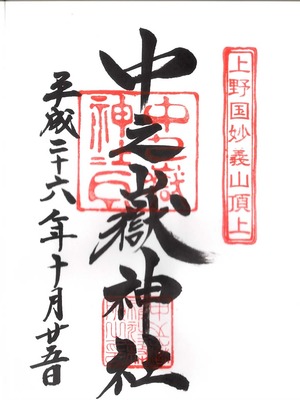 上野国妙義山頂上
中之嶽神社
平成二十六年十月廿五日
中之嶽
神社印